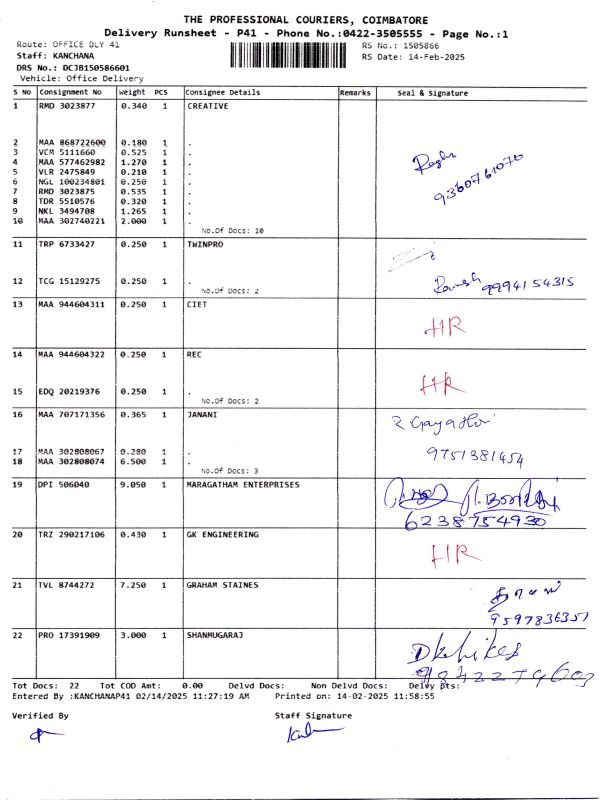 THE PROFESSIONAL COURIERS, COIMBATORE
Delivery Runsheet - P41 - Phone No.:0422-3505555 - Page No.:1
Route: OFFICE DLY 41 RS No.: 1505866
Staff: KANCHANA RS Date: 14-Feb-2025
DRS No.: DCJB150586601
Vehicle: Office Delivery
S NO Consignment No Weight PCS Consignee Details Remarks Seal & Signature
1 RMD 3023877 0.340 1 CREATIVE
2 MAA 868722600 0.180 1 .
3 VCM 5111660 0.525 1 .
4 MAA 577462982 1.270 1 .
5 VLR 2475849 0.210 1 .
6 NGL 100234801 0.250 1 .
7 RMD 3023875 0.535 1 .
8 TDR 5510576 0.320 1 .
9 NKL 3494708 1.265 1 .
10 MAA 302740221 2.000 1 .
No.Of Docs: 10
9360761070
11 TRP 6733427 0.250 1 TWINPRO
12 TCG 15129275 0.250 1 .
No.Of Docs: 2
Ramesh 9994154315
13 MAA 944604311 0.250 1 CIET
HR
14 MAA 944604322 0.250 1 REC
HR
15 EDQ 20219376 0.250 1 .
No.Of Docs: 2
16 MAA 707171356 0.365 1 JANANI
R Gayathri
17 MAA 302808067 0.280 1 .
9751381454
18 MAA 302808074 6.500 1 .
No.Of Docs: 3
19 DPI 506040 9.050 1 MARAGATHAM ENTERPRISES
6238754930
20 TRZ 290217106 0.430 1 GK ENGINEERING
HR
21 TVL 8744272 7.250 1 GRAHAM STAINES
9597836357
22 PRO 17391909 3.000 1 SHANMUGARAJ
Tot Docs: 22 Tot COD Amt: 0.00 Delvd Docs: Non Delvd Docs: Delvy pts:
Entered By :KANCHANAP41 02/14/2025 11:27:19 AM Printed on: 14-02-2025 11:58:55
Verified By Staff Signature